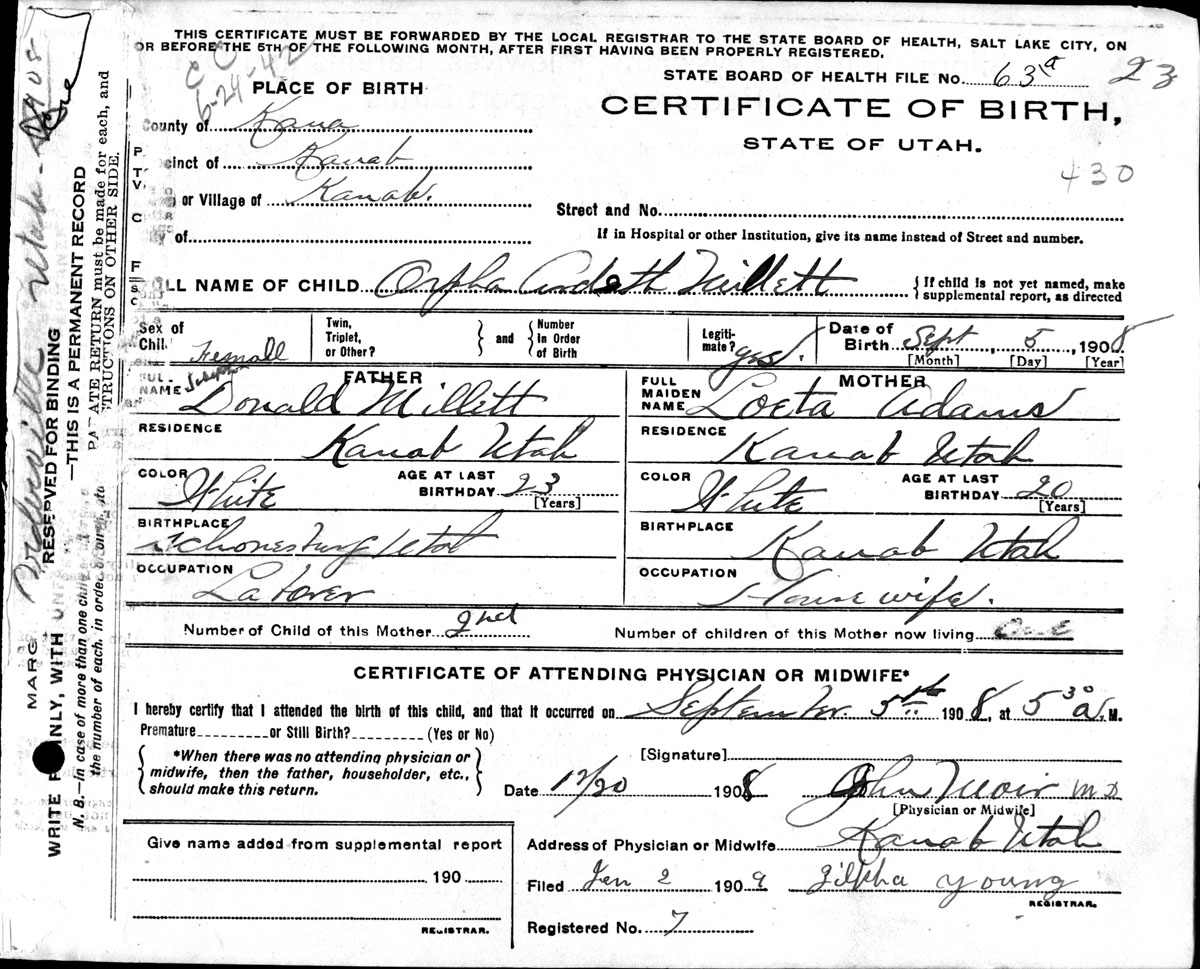 THIS CERTIFICATE MUST BE FORWARDED BY THE LOCAL REGISTRAR TO THE STATE BOARD OF HEALTH, SALT LAKE CITY, ON
OR BEFORE THE 5TH OF THE FOLLOWING MONTH, AFTER FIRST HAVING BEEN PROPERLY REGISTERED.
STATE BOARD OF HEALTH FILE No. 63a 23
6-24-42
PLACE OF BIRTH
CERTIFICATE OF BIRTH,
STATE OF UTAH.
430
County of Kana
cinct of Kanab
or Village of Kanab.
of
Street and No.
If in Hospital or other Institution, give its name instead of Street and number.
LL NAME OF CHILD Orpha Ardeth Millett {If child is not yet named, make
supplemental report, as directed
Sex of Child Femall
Twin, Triplet, or Other? } and { Number In Order of Birth
Legiti-mate? yes.
Date of Birth Sept, 5, 1908
[Month] [Day] [Year]
FATHER
FUL- NAME Joseph Donald Millett
RESIDENCE Kanab Utah
COLOR White AGE AT LAST BIRTHDAY 23 [Years]
BIRTHPLACE Schonesburg Utah
OCCUPATION Laborer
MOTHER
FULL MAIDEN NAME Loeta Adams
RESIDENCE Kanab Utah
COLOR White AGE AT LAST BIRTHDAY 20 [Years]
BIRTHPLACE Kanab Utah
OCCUPATION House wife.
Number of Child of this Mother 2nd Number of children of this Mother now living One
CERTIFICATE OF ATTENDING PHYSICIAN OR MIDWIFE*
I hereby certify that I attended the birth of this child, and that it occurred on September 5th 1908, at 5 30 a. M.
Premature or Still Birth? (Yes or No)
*When there was no attending physician or
midwife, then the father, householder, etc.,
should make this return.
[Signature]
Date 12/20 1908 John Moir M D
[Physician or Midwife]
Give name added from supplemental report
190
REGISTRAR.
Address of Physician or Midwife Kanab Utah
Filed Jan 2 1909 Zilpha Young
REGISTRAR.
Registered No. 7
MARG RESERVED FOR BINDING
WRITE P INLY, WITH UNF —THIS IS A PERMANENT RECORD
N. B.—in case of more than one chil ATE RETURN must be made for each, and
the number of each, in order of birth STRUCTIONS ON OTHER SIDE.
Utah